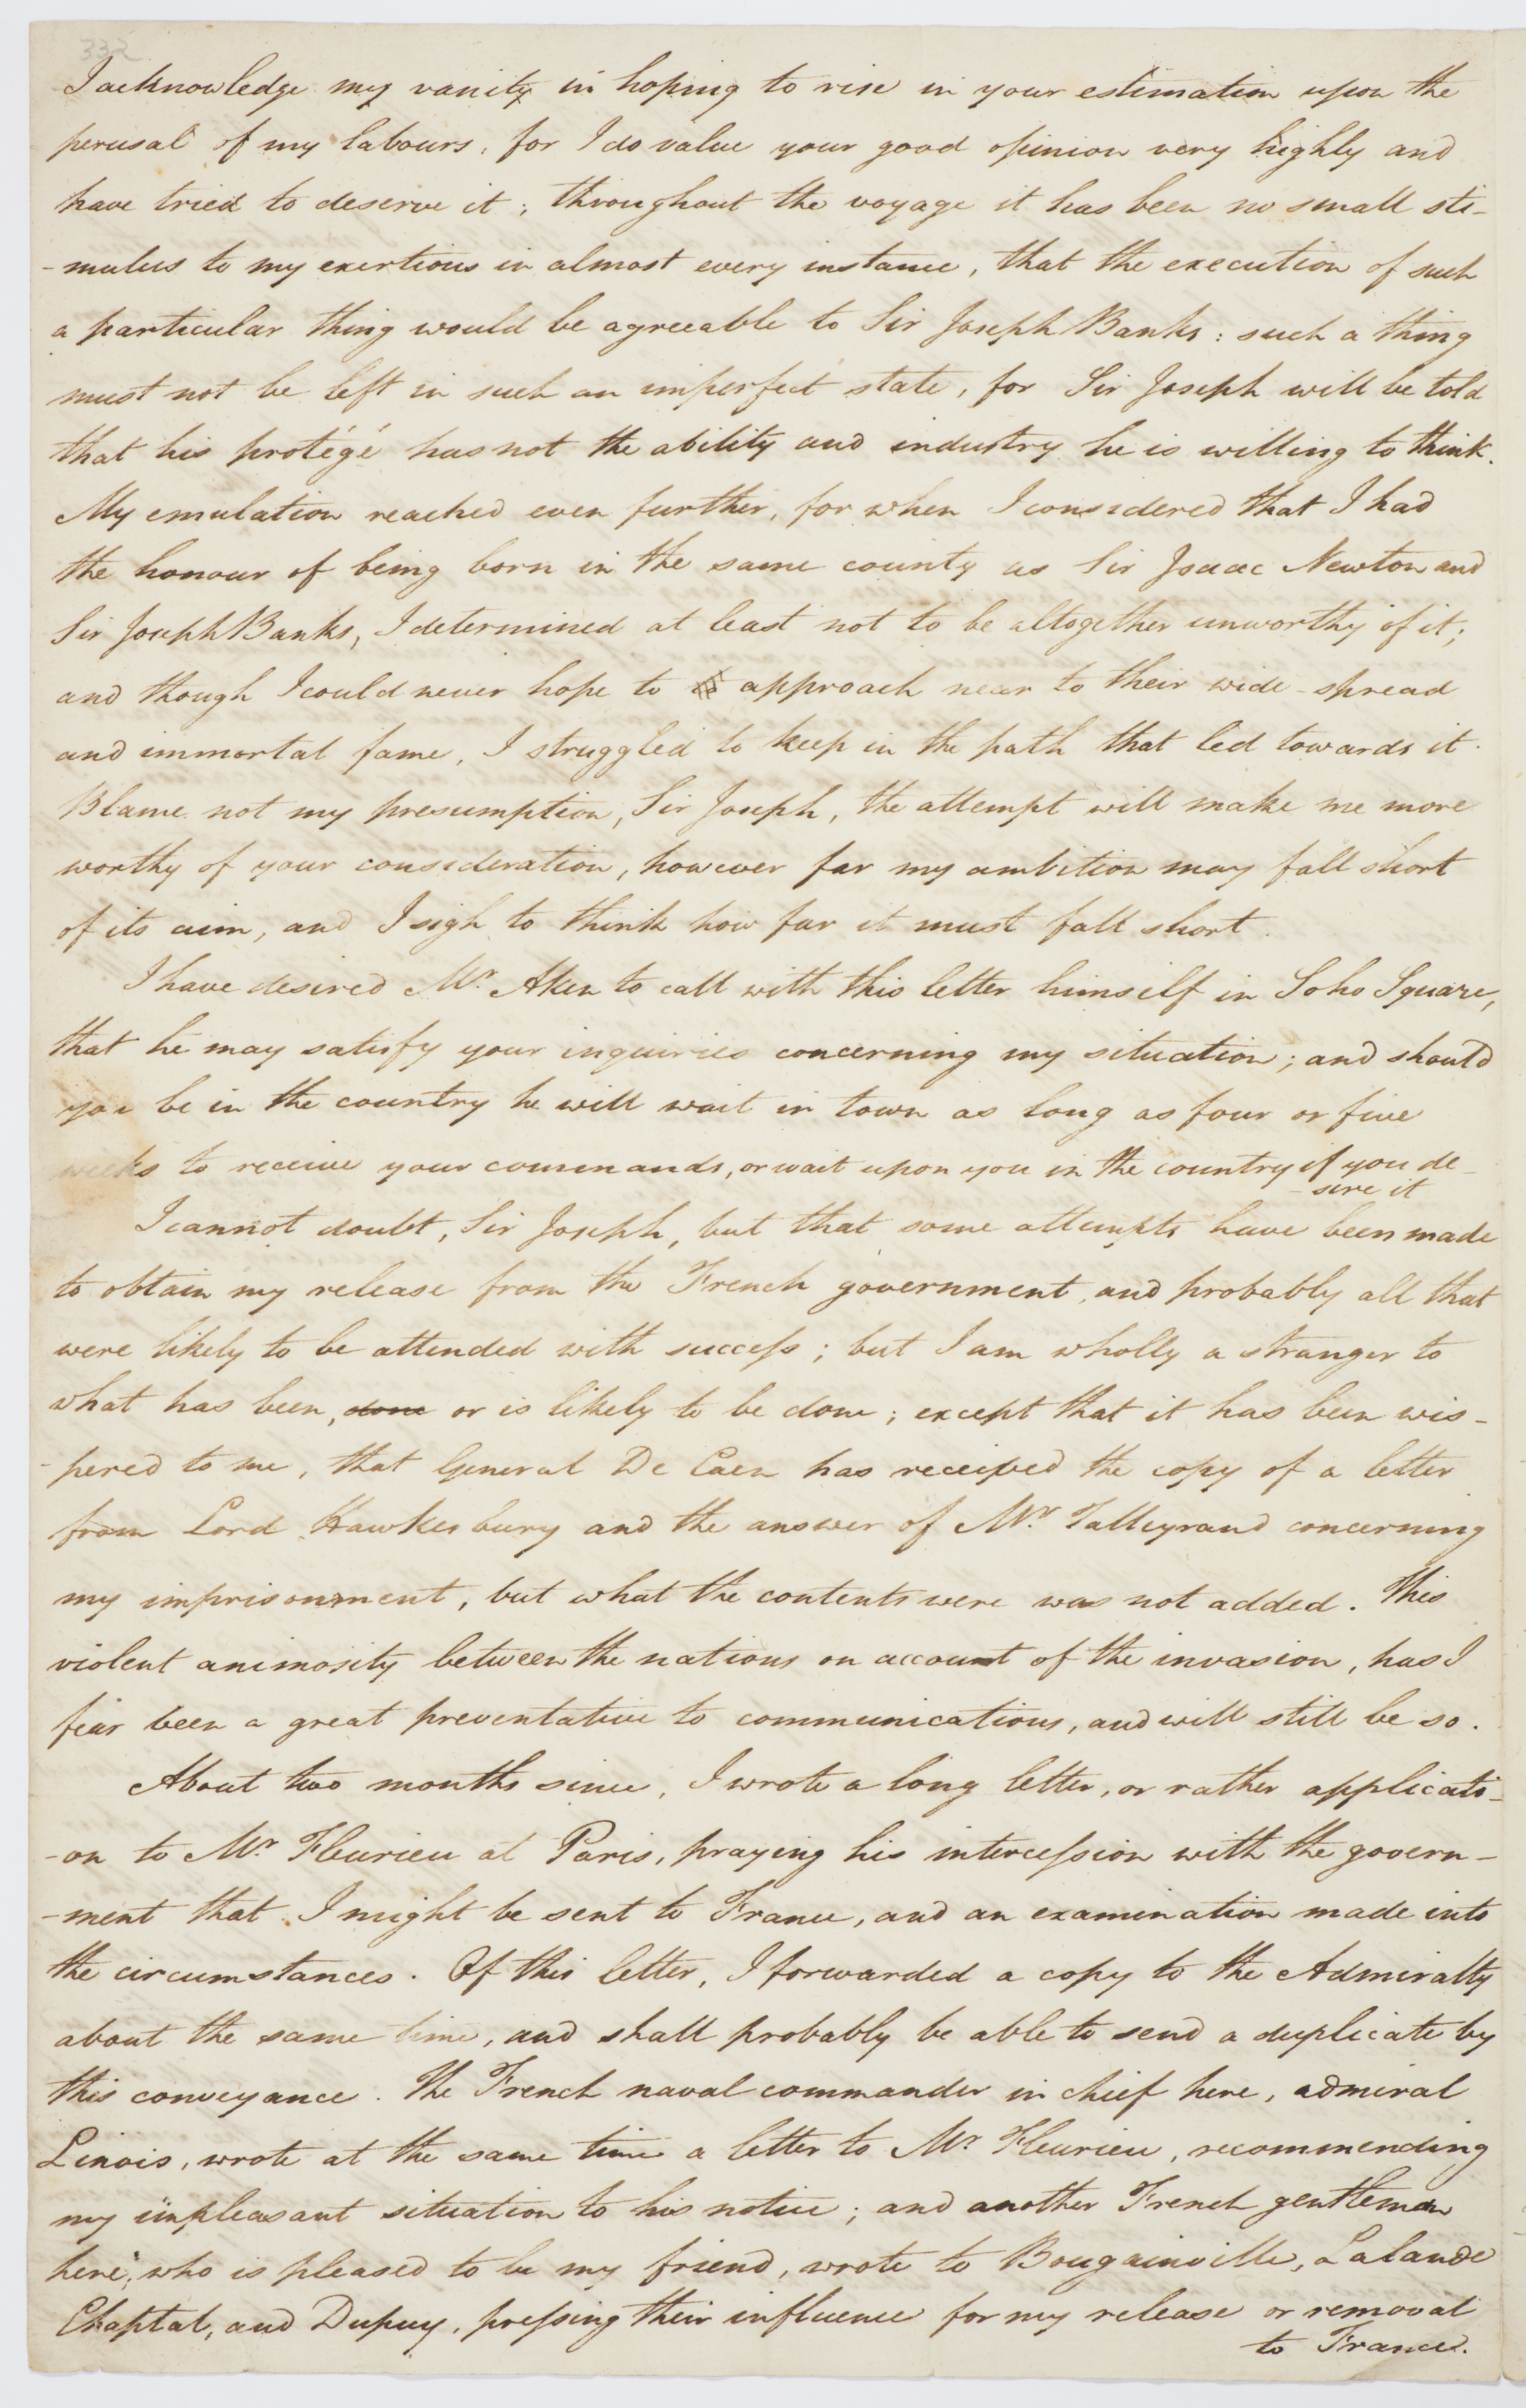 332
I acknowledge my vanity in hoping to rise in your estimation upon the
perusal of my labours, for I do value your good opinion very highly and
have tried to deserve it; throughout the voyage it has been no small sti-
-mulus to my exertions in almost every instance, that the execution of such
a particular thing would be agreeable to Sir Joseph Banks: such a thing
must not be left in such an imperfect state, for Sir Joseph will be told
that his protégé has not the ability and industry he is willing to think.
My emulation reached even further, for when I considered that I had
the honour of being born in the same county as Sir Isaac Newton and
Sir Joseph Banks, I determined at least not to be altogether unworthy of it;
and though I could never hope to approach near to their wide-spread
and immortal fame, I struggled to keep in the path that led towards it.
Blame not my presumption, Sir Joseph, the attempt will make me more
worthy of your consideration, however far my ambition may fall short
of its aim, and I sigh to think how far it must fall short.
I have desired Mr. Aken to call with this letter himself in Soho Square,
that he may satisfy your inquiries concerning my situation; and should
you be in the country he will wait in town as long as four or five
weeks to receive your commands, or wait upon you in the country if you de-
-sire it
I cannot doubt, Sir Joseph, but that some attempts have been made
to obtain my release from the French government, and probably all that
were likely to be attended with success; but I am wholly a stranger to
what has been, done or is likely to be done; except that it has been wis-
-pered to me, that General De Caen has received the copy of a letter
from Lord Hawkesbury and the answer of Mr. Talleyrand concerning
my imprisonment, but what the contents were was not added. This
violent animosity between the nations on account of the invasion, has I
fear been a great preventative to communications, and will still be so.
About two months since, I wrote a long letter, or rather applicati-
-on to Mr. Fleurieu at Paris, praying his intercession with the govern-
-ment that I might be sent to France, and an examination made into
the circumstances. Of this letter, I forwarded a copy to the Admiralty
about the same time, and shall probably be able to send a duplicate by
this conveyance. The French naval commander in chief here, admiral
Linois, wrote at the same time a letter to Mr Fleurieu, recommending
my unpleasant situation to his notice; and another French gentleman
here, who is pleased to be my friend, wrote to Bougainville, Lalande
Chaptal, and Dupuy, pressing their influence for my release or removal
to France.